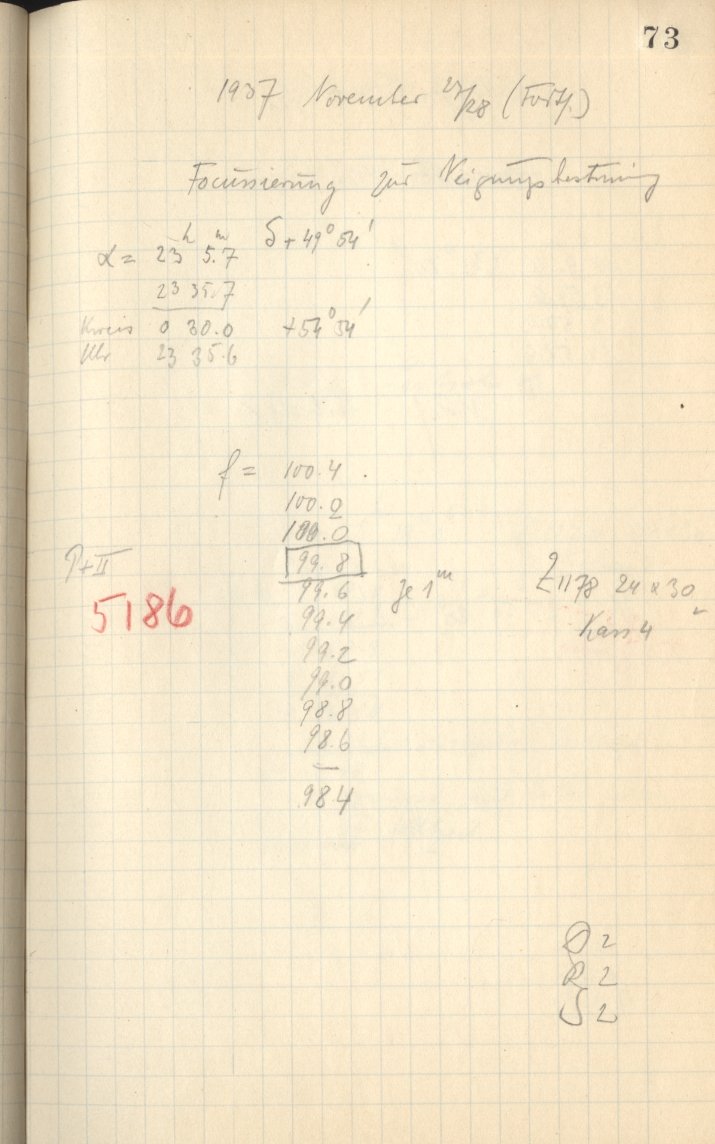 73
1937 November 27/28 (Forts.)
Focussierung zur Neigungsbestimmung
α = 23h 5m.7 δ + 49° 54'
23 35.7
Kreis 0 30.0 + 54° 54'
Uhr 23 35.6
f = 100.4
100.2
100.0
P+II 99.8
5186 99.6 je 1m Z 1178 24 x 30
99.4 Kass 4
99.2
99.0
98.8
98.6
–
98.4
D 2
R 2
S 2